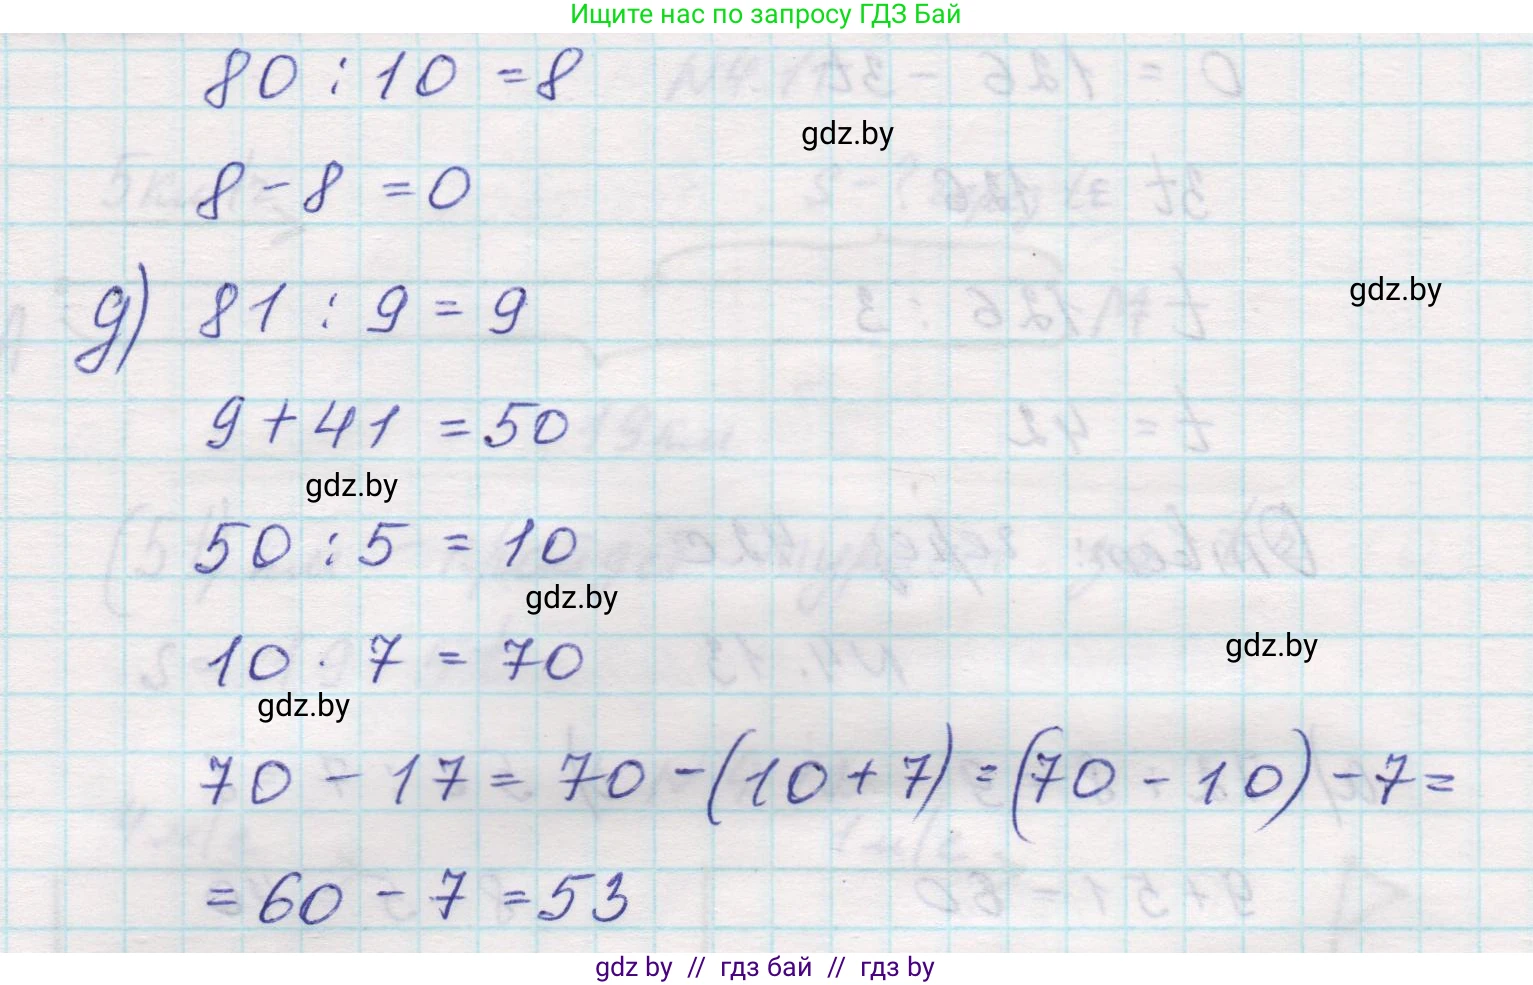 Ищите нас по запросу ГДЗ Бай
80 : 10 = 8
gdz.by
8 - 8 = 0
gdz.by
д) 81 : 9 = 9
9 + 41 = 50
gdz.by
50 : 5 = 10
gdz.by
10 · 7 = 70
gdz.by
gdz.by
70 - 17 = 70 - (10 + 7) = (70 - 10) - 7 =
= 60 - 7 = 53
gdz by // гдз бай // гдз by